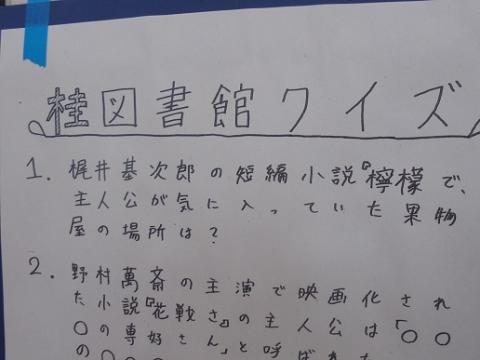 桂図書館クイズ
1. 梶井基次郎の短編小説『檸檬』で、
主人公が気に入っていた果物
屋の場所は？
2. 野村萬斎の主演で映画化され
た小説『花戦さ』の主人公は「〇〇
〇の専好さん」と呼ばれた
の〇